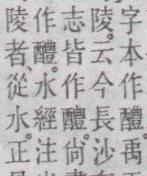 字本作醴。禹
陵。云今長沙
志皆作醴。尙
作醴。水經注
陵者、從水。正